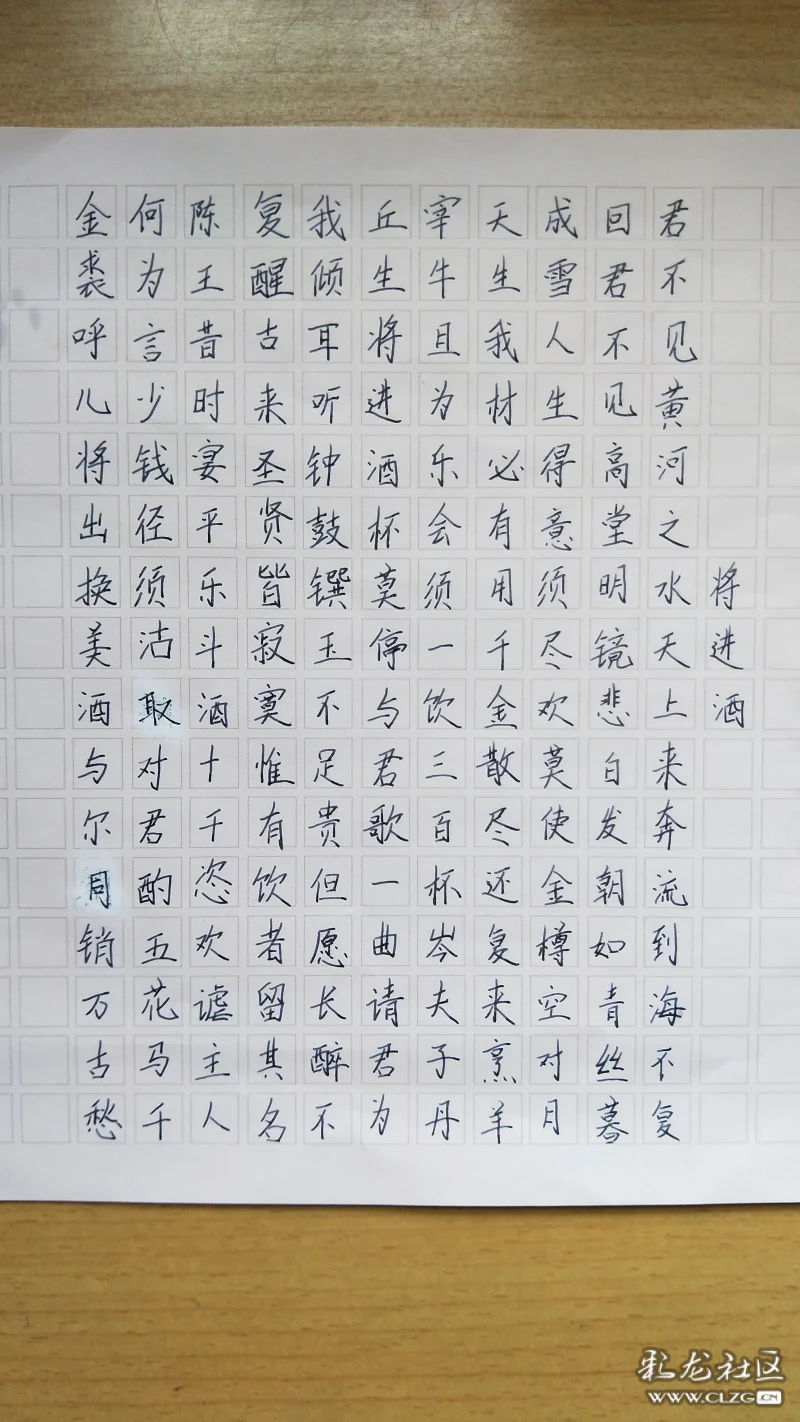 将进酒
君不见黄河之水天上来奔流到海不复
回君不见高堂明镜悲白发朝如青丝暮
成雪人生得意须尽欢莫使金樽空对月
天生我材必有用千金散尽还复来烹羊
宰牛且为乐会须一饮三百杯岑夫子丹
丘生将进酒杯莫停与君歌一曲请君为
我倾耳听钟鼓馔玉不足贵但愿长醉不
复醒古来圣贤皆寂寞惟有饮者留其名
陈王昔时宴平乐斗酒十千恣欢谑主人
何为言少钱径须沽取对君酌五花马千
金裘呼儿将出换美酒与尔同销万古愁
彩龙社区
WWW.CLZG.CN